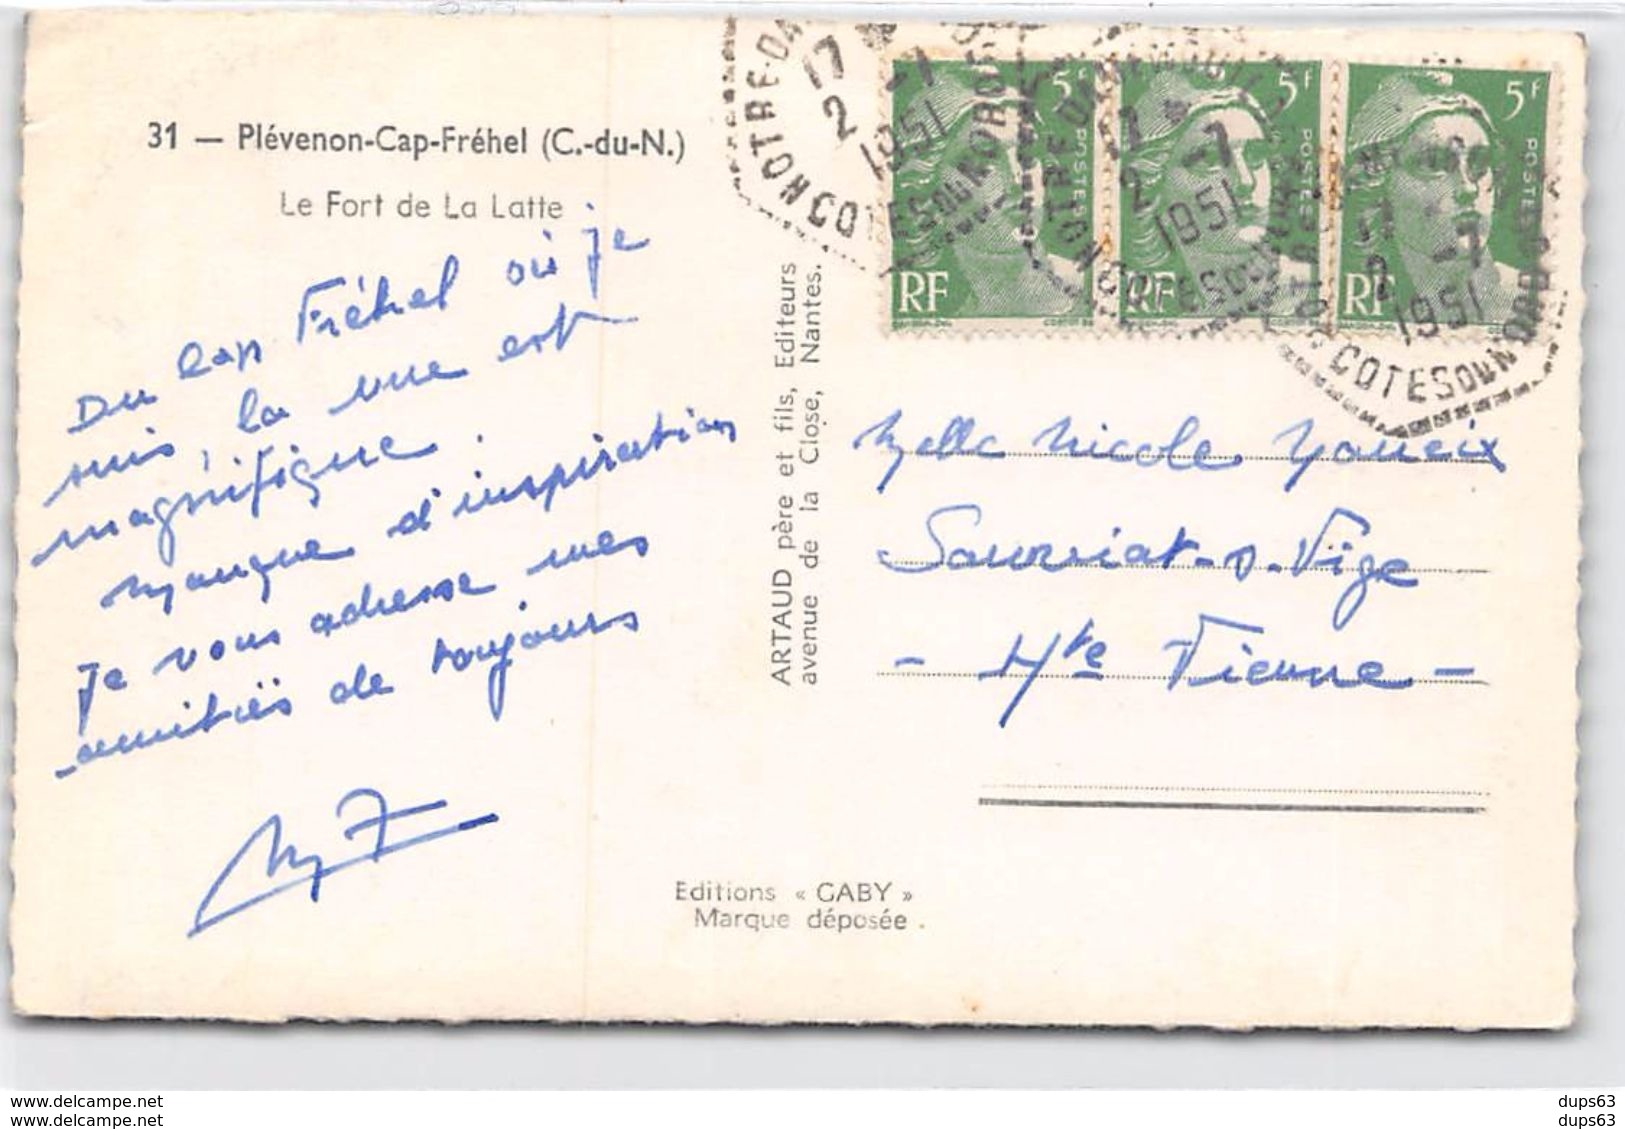 31 — Plévenon-Cap-Fréhel (C.-du-N.)
Le Fort de La Latte
Du Cap Fréhel où je
suis, la vue est
magnifique.
Manque d'inspiration
je vous adresse mes
amitiés de toujours
ARTAUD père et fils, Editeurs
avenue de la Close, Nantes.
Editions « GABY »
Marque déposée.
17
2 -7
1951
COTES DU NORD
5F
POSTES
RF
17
2 -7
1951
COTES DU NORD
5F
POSTES
RF
17
2 -7
1951
COTES DU NORD
5F
POSTES
RF
Melle Nicole
Sauviat-s-Vige
- Hte Vienne -
dups63
dups63
www.delcampe.net
www.delcampe.net